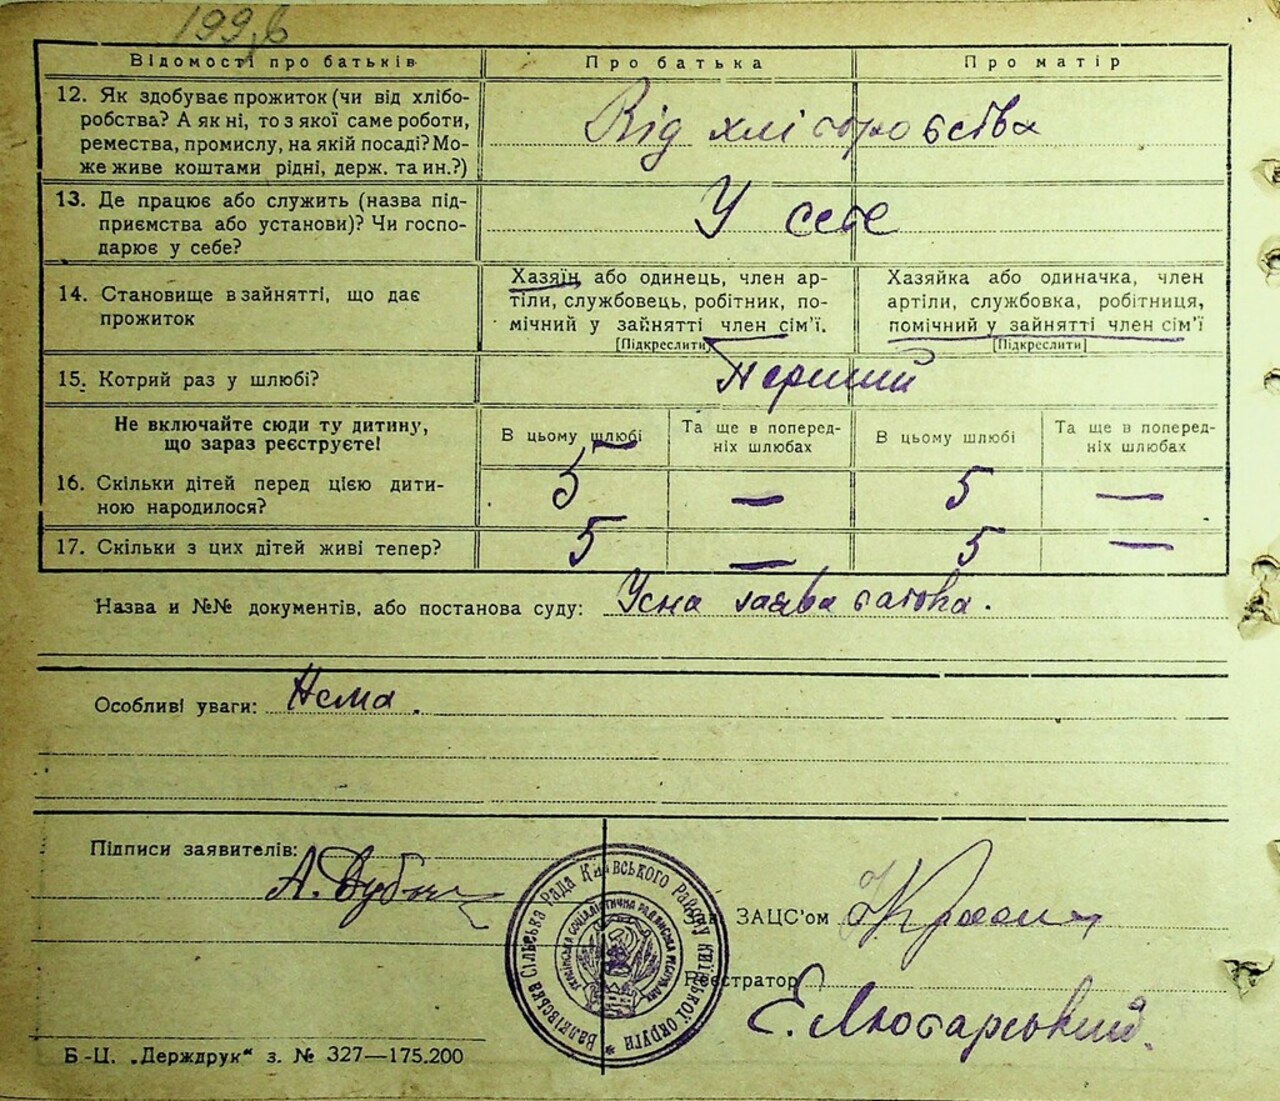 199в
Відомості про батьків
Про батька
Про матір
12. Як здобуває прожиток (чи від хлібо-
робства? А як ні, то з якої саме роботи,
ремества, промислу, на якій посаді? Мо-
же живе коштами рідні, держ. та ин.?)
Від хліборобства
13. Де працює або служить (назва під-
приємства або установи)? Чи госпо-
дарює у себе?
У себе
14. Становище в зайнятті, що дає
прожиток
Хазяїн або одинець, член ар-
тіли, службовець, робітник, по-
мічний у зайнятті член сім’ї.
[Підкреслити]
Хазяйка або одиначка, член
артіли, службовка, робітниця,
помічний у зайнятті член сім’ї
[Підкреслити]
15. Котрий раз у шлюбі?
Перший
Не включайте сюди ту дитину,
що зараз реєструєте!
В цьому шлюбі
Та ще в поперед-
ніх шлюбах
В цьому шлюбі
Та ще в поперед-
ніх шлюбах
16. Скільки дітей перед цією дити-
ною народилося?
5 — 5 —
17. Скільки з цих дітей живі тепер?
5 — 5 —
Назва и №№ документів, або постанова суду: Усна заява батька.
Особливі уваги: Нема.
Підписи заявителів:
А.
Зав. ЗАЦС’ом
Реєстратор
Є. Лютарський
Сільська Рада Київського Району Київської Округи
Б.-Ц. „Держдрук“ з. № 327—175.200